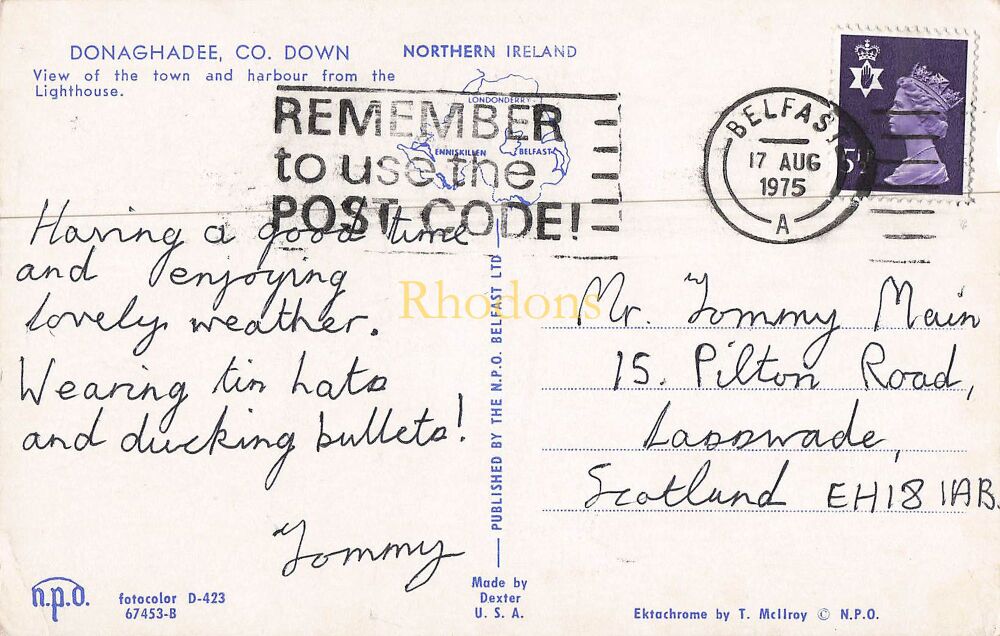 DONAGHADEE, CO. DOWN NORTHERN IRELAND
View of the town and harbour from the
Lighthouse.
LONDONDERRY
ENNISKILLEN BELFAST
REMEMBER
to use the
POST CODE!
BELFAST
17 AUG
1975
A
5½
Having a good time
and enjoying
lovely weather.
Wearing tin hats
and ducking bullets!
Tommy
Rhodons
PUBLISHED BY THE N.P.O. BELFAST LTD
Mr. Tommy Main
15. Pilton Road,
Lasswade,
Scotland EH18 1AB.
n.p.o. fotocolor D-423
67453-B
Made by
Dexter
U. S. A.
Ektachrome by T. McIlroy © N.P.O.